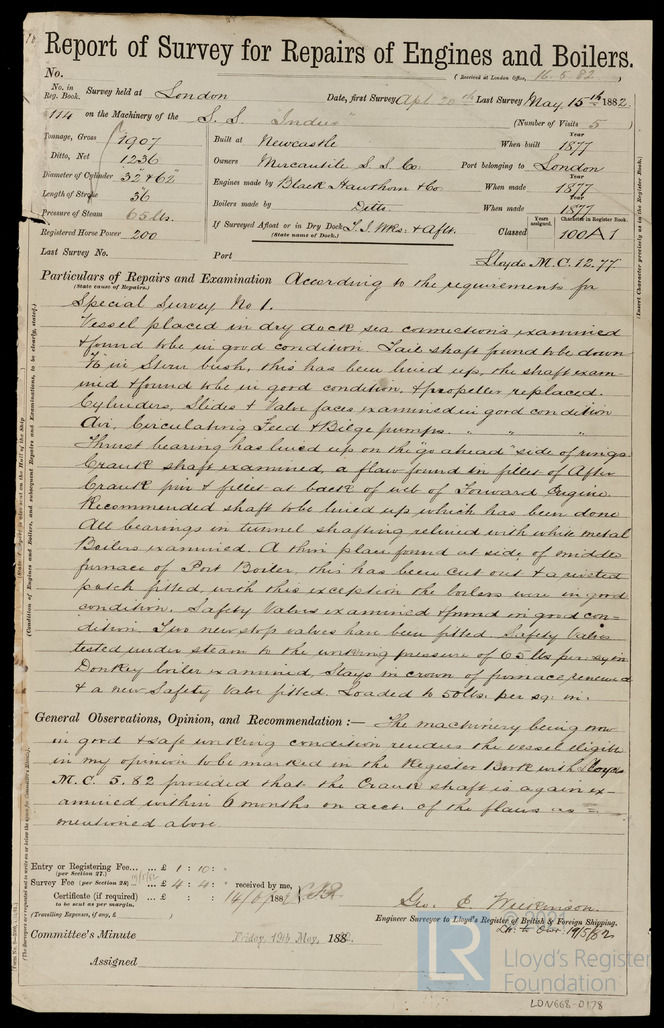 Report of Survey for Repairs of Engines and Boilers.
No. (Received at London Office, 16.5.82)
No. in Reg. Book. Survey held at London Date, first Survey Apl 20th Last Survey May 15th 1882
114 on the Machinery of the S.S. "Indus" (Number of Visits 5)
Tonnage, Gross 1907 Built at Newcastle When built Year 1877
Ditto, Net 1236 Owners Mercantile S.S. Co Port belonging to London
Diameter of Cylinder 32" & 62" Engines made by Black Hawthorn & Co When made Year 1877
Length of Stroke 36 Boilers made by Ditto When made Year 1877
Pressure of Steam 65 lbs.
Registered Horse Power 200 If Surveyed Afloat or in Dry Dock & Aflt. (State name of Dock.) Classed Years assigned. Character in Register Book. 100A1
Last Survey No. Port Lloyds M.C. 12.77
Particulars of Repairs and Examination According to the requirements for
(State cause of Repairs.)
Special Survey No 1.
Vessel placed in dry dock sea connections examined
& found to be in good condition. Tail shaft found to be down
in Stern bush, this has been lined up, the shaft exam-
ined & found to be in good condition, & propeller replaced.
Cylinders, Slides & Valve faces examined in good condition
Air, Circulating Feed & Bilge pumps " " "
Thrust bearing has lined up on the "go ahead" side of rings
Crank shaft examined, a flaw found in fillet of After
Crank pin & fillet at back of web of Forward Engine.
Recommended shaft to be lined up which has been done
All bearings in tunnel shafting relined with white metal
Boilers examined. A thin place found at side of middle
furnace of Port Boiler, this has been cut out & a riveted
patch fitted, with this exception the boilers were in good
condition. Safety Valves examined & found in good con-
dition. Two new stop valves have been fitted. Safety Valves
tested under steam to the working pressure of 65 lbs per sq in.
Donkey boiler examined, Stays in crown of furnace renewed
& a new Safety Valve fitted. Loaded to 50 lbs. per sq. in.
General Observations, Opinion, and Recommendation:— The machinery being now
in good & safe working condition renders the vessel eligible
in my opinion to be marked in the Register Book with Lloyds
M.C. 5.82 provided that the Crank shaft is again ex-
amined within 6 months on acct. of the flaws as
mentioned above
Entry or Registering Fee... ... £ 1 : 10 : "
(per Section 27.)
Survey Fee (per Section 28) ... £ 4 : 4 : received by me,
Certificate (if required) ... £ : :
to be sent as per margin.
(Travelling Expenses, if any, £ )
Geo. E. Wilkinson.
Engineer Surveyor to Lloyd's Register of British & Foreign Shipping.
19/5/82
Committee's Minute Friday, 19th May, 1882
Assigned
© 2021
LR Lloyd's Register
Foundation
LON668-0178